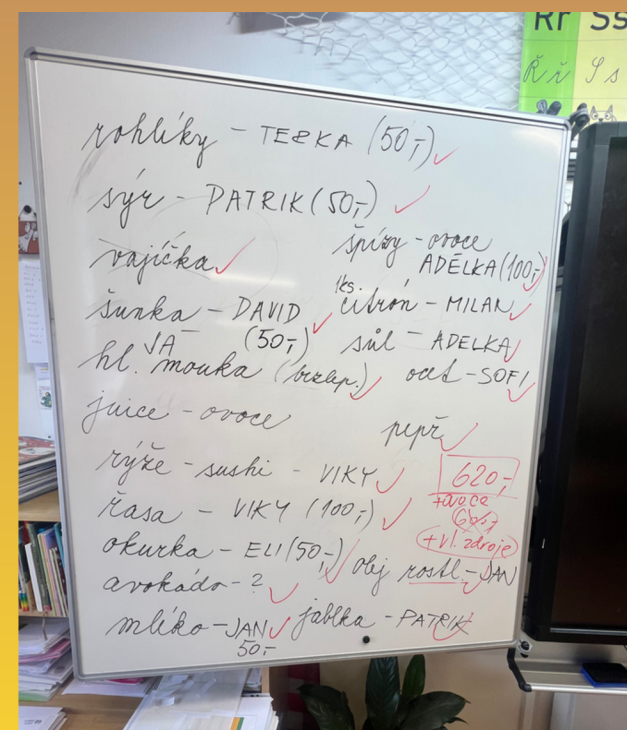 Rr Ss
Ř ř S s
rohlíky - TEZKA (50,-)
sýr - PATRIK (50,-)
vajíčka
špízy - ovoce
ADÉLKA (100,-)
šunka - DAVID
(50,-)
1ks
citrón - MILAN
JÁ
hl. mouka (bezlep.)
sůl - ADÉLKA
ocet - SOFI
juice - ovoce
pepř
rýže - sushi - VIKY
620,-
+ovoce
+vl. zdroje
řasa - VIKY (100,-)
okurka - ELI (50,-)
olej rostl. - JAN
avokádo - ?
mlíko - JAN
50,-
jablka - PATRIK